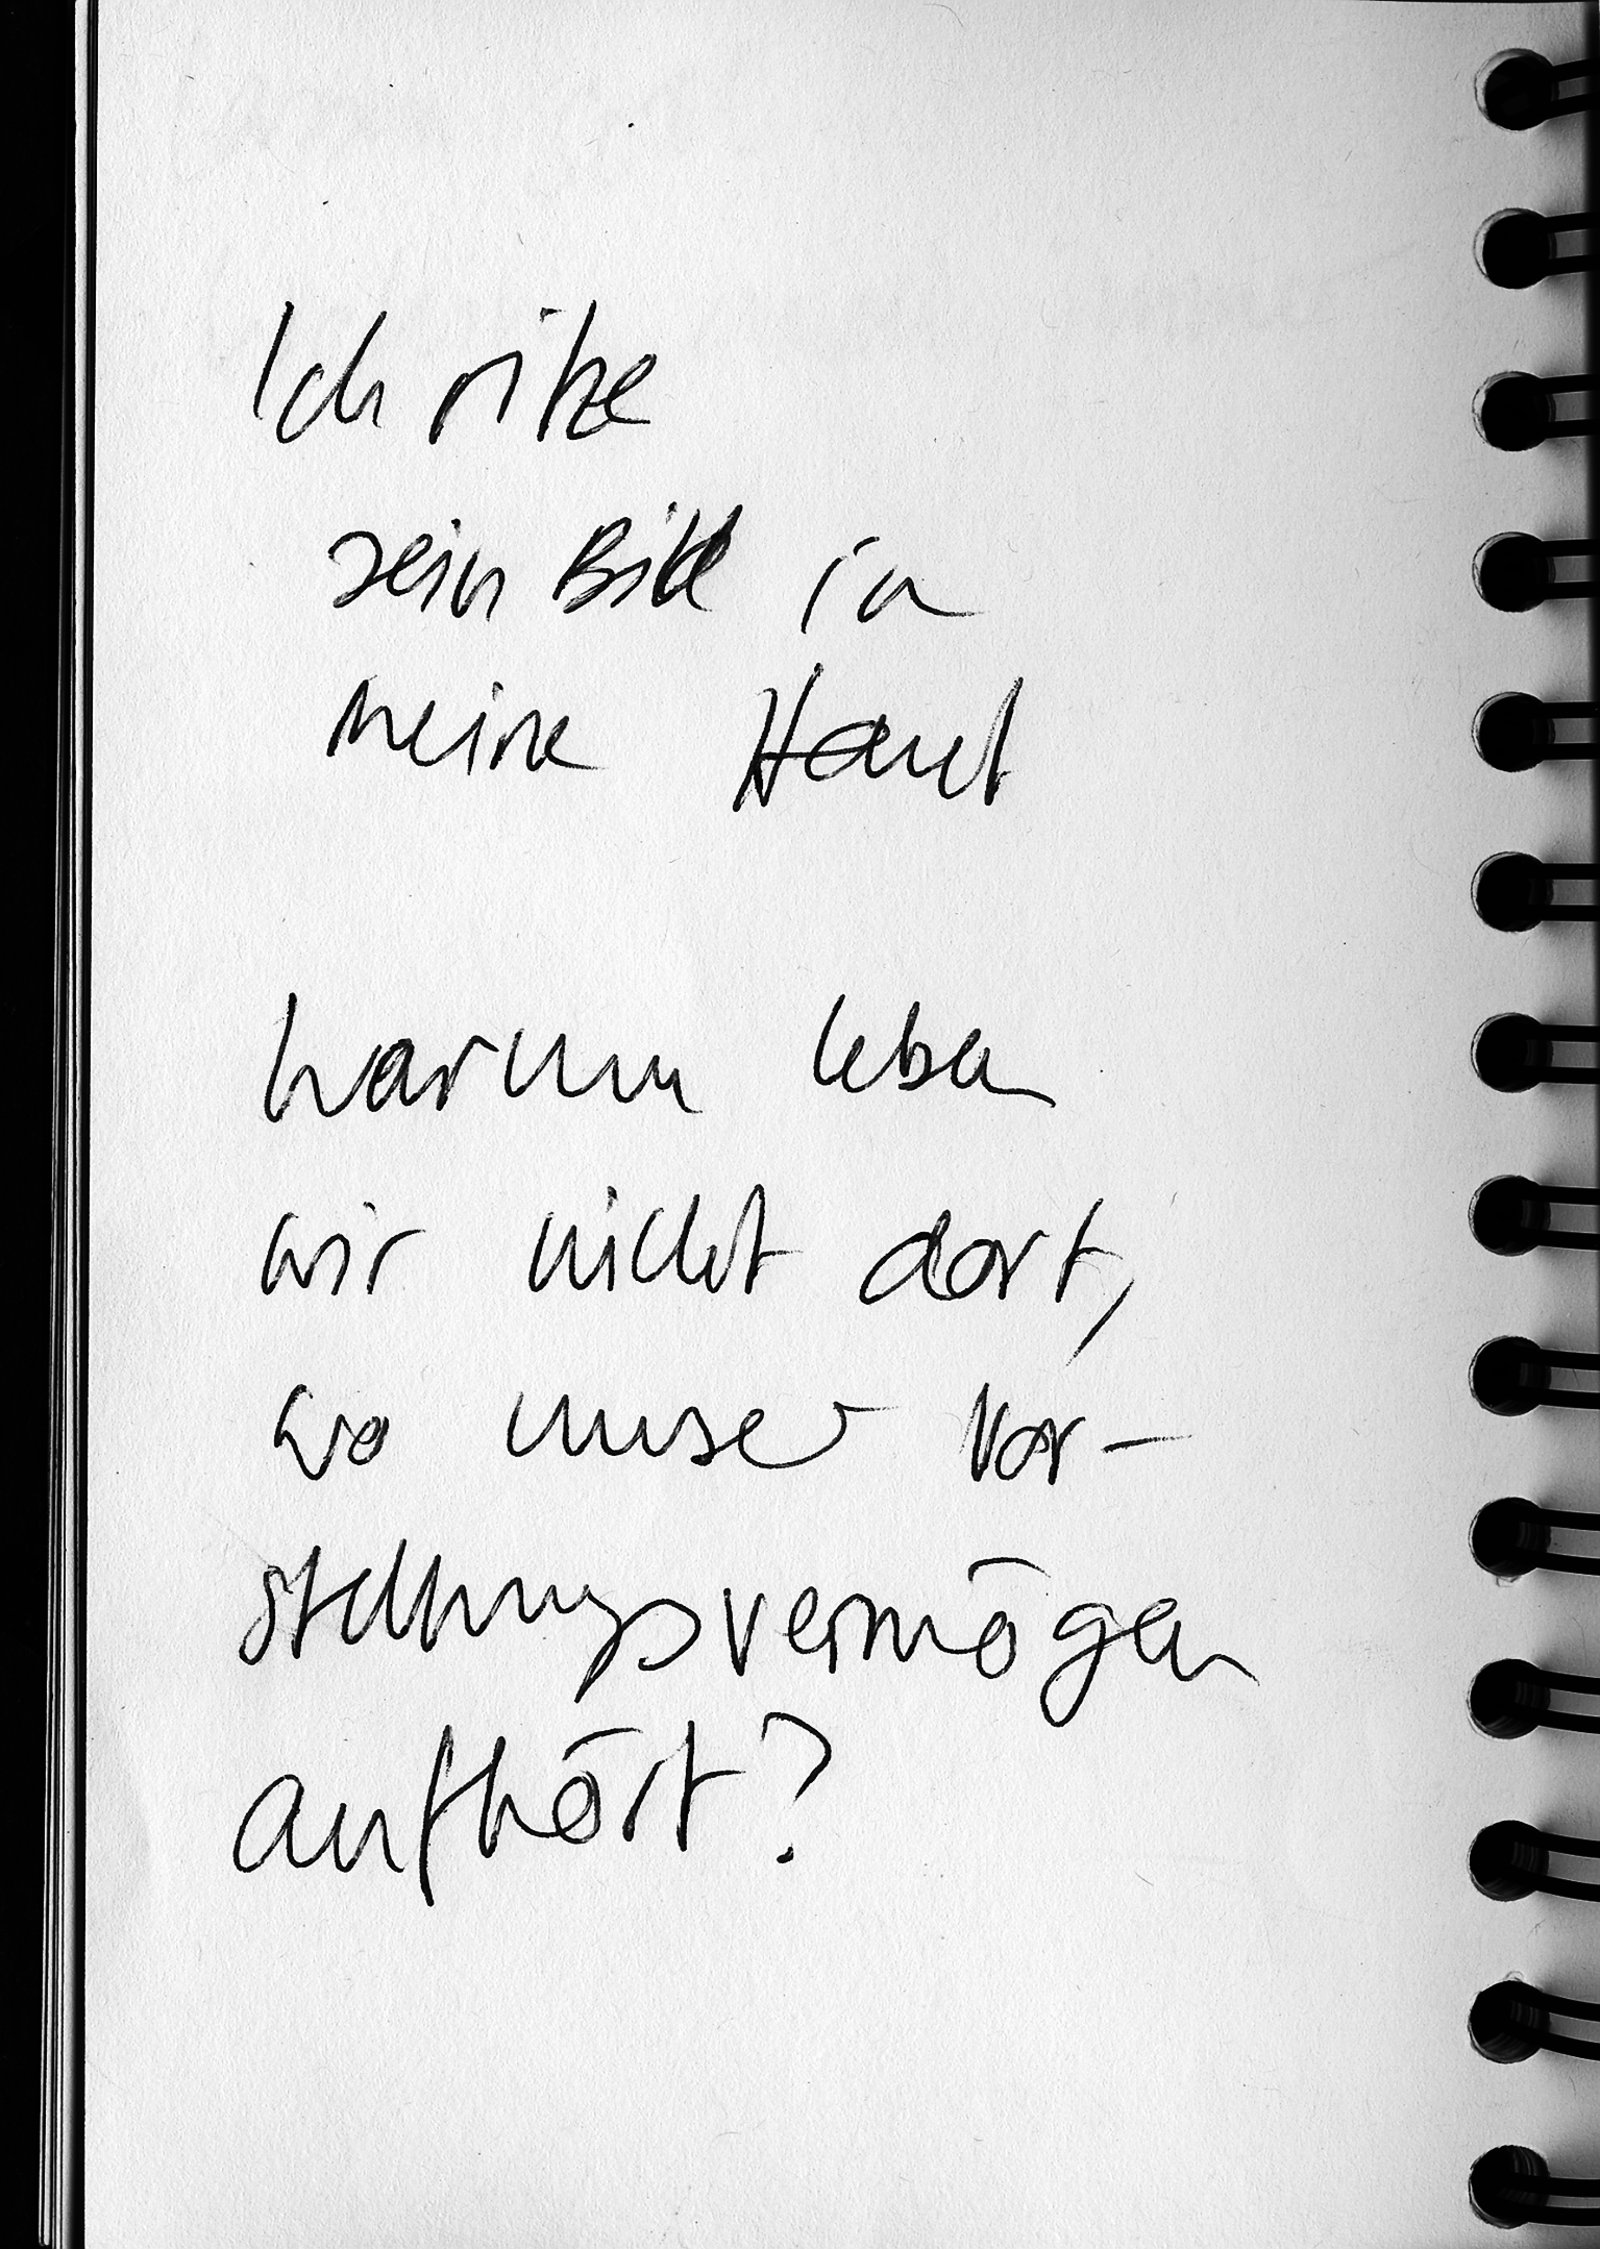 Ich ritze
sein Bild in
meine Haut
warum leben
wir nicht dort,
wo unser Vor-
stellungsvermögen
aufhört?